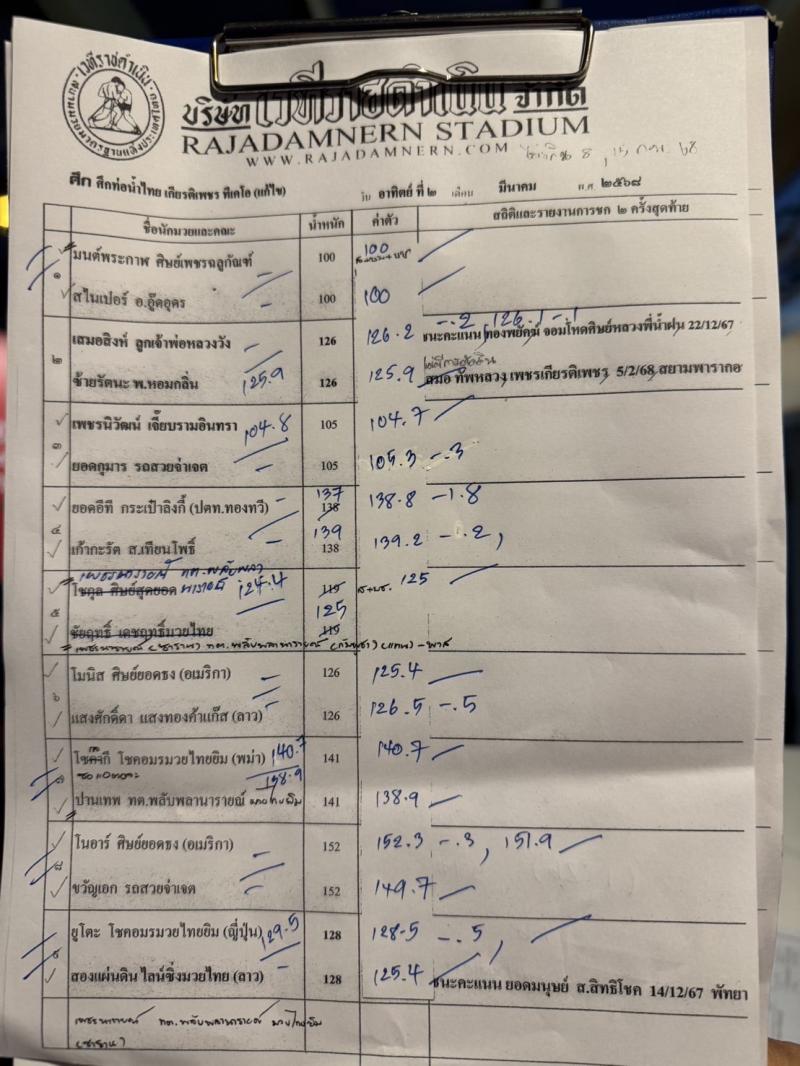 เวทีราชดำเนิน
บริษัท เวทีราชดำเนิน จำกัด
RAJADAMNERN STADIUM
WWW.RAJADAMNERN.COM
ศึก ศึกท่อน้ำไทย เกียรติเพชร ทีเคโอ (แก้ไข) วัน อาทิตย์ ที่ ๒ เดือน มีนาคม พ.ศ. ๒๕๖๘
ชื่อนักมวยและคณะ น้ำหนัก ค่าตัว สถิติและรายงานการชก ๒ ครั้งสุดท้าย
๑
มนต์พระกาฬ ศิษย์เพชรฉลูกัณฑ์ 100 100
สไนเปอร์ อ.อู๊ดอุดร 100 100
๒
เสมอสิงห์ ลูกเจ้าพ่อหลวงวัง 126 126.2 -.2 126.1 -.1
ชนะคะแนน ทองพยัคฆ์ จอมโหดศิษย์หลวงพี่น้ำฝน 22/12/67
ซ้ายรัตนะ พ.หอมกลิ่น 125.9 126 125.9 เสมอ ทัพหลวง เพชรเกียรติเพชร 5/2/68 สยามพารากอ
๓
เพชรนิวัฒน์ เจี๊ยบรามอินทรา 104.8 105 104.7
ยอดกุมาร รถสวยจ่าเจต 105 105.3 -.3
๔
ยอดอีที กระเป๋าลิงกี้ (ปตท.ทองทวี) 137 138 138.8 -1.8
เก้ากะรัต ส.เทียนโพธิ์ 139 138 139.2 -.2,
๕
เพชรนารายณ์ ทต.พลับพลา
โชกุล ศิษย์สุดยอด นารายณ์ 124.4 115 125
ชัยฤทธิ์ เดชฤทธิ์มวยไทย 125 115
๖
โมนิส ศิษย์ยอดธง (อเมริกา) 126 125.4
แสงศักดิ์ดา แสงทองค้าแก๊ส (ลาว) 126 126.5 -.5
๗
โชคอมรมวยไทยยิม (พม่า) 140.7 141 140.7
138.9
ปานเทพ ทต.พลับพลานารายณ์ 141 138.9
๘
โนอาร์ ศิษย์ยอดธง (อเมริกา) 152 152.3 -.3, 151.9
ขวัญเอก รถสวยจ่าเจต 152 149.7
๙
ยูโตะ โชคอมรมวยไทยยิม (ญี่ปุ่น) 129.5 128 128.5 -.5,
สองแผ่นดิน ไลน์ซิ่งมวยไทย (ลาว) 128 125.4 ชนะคะแนน ยอดมนุษย์ ส.สิทธิโชค 14/12/67 พัทยา
เพชรนารายณ์ ทต.พลับพลานารายณ์